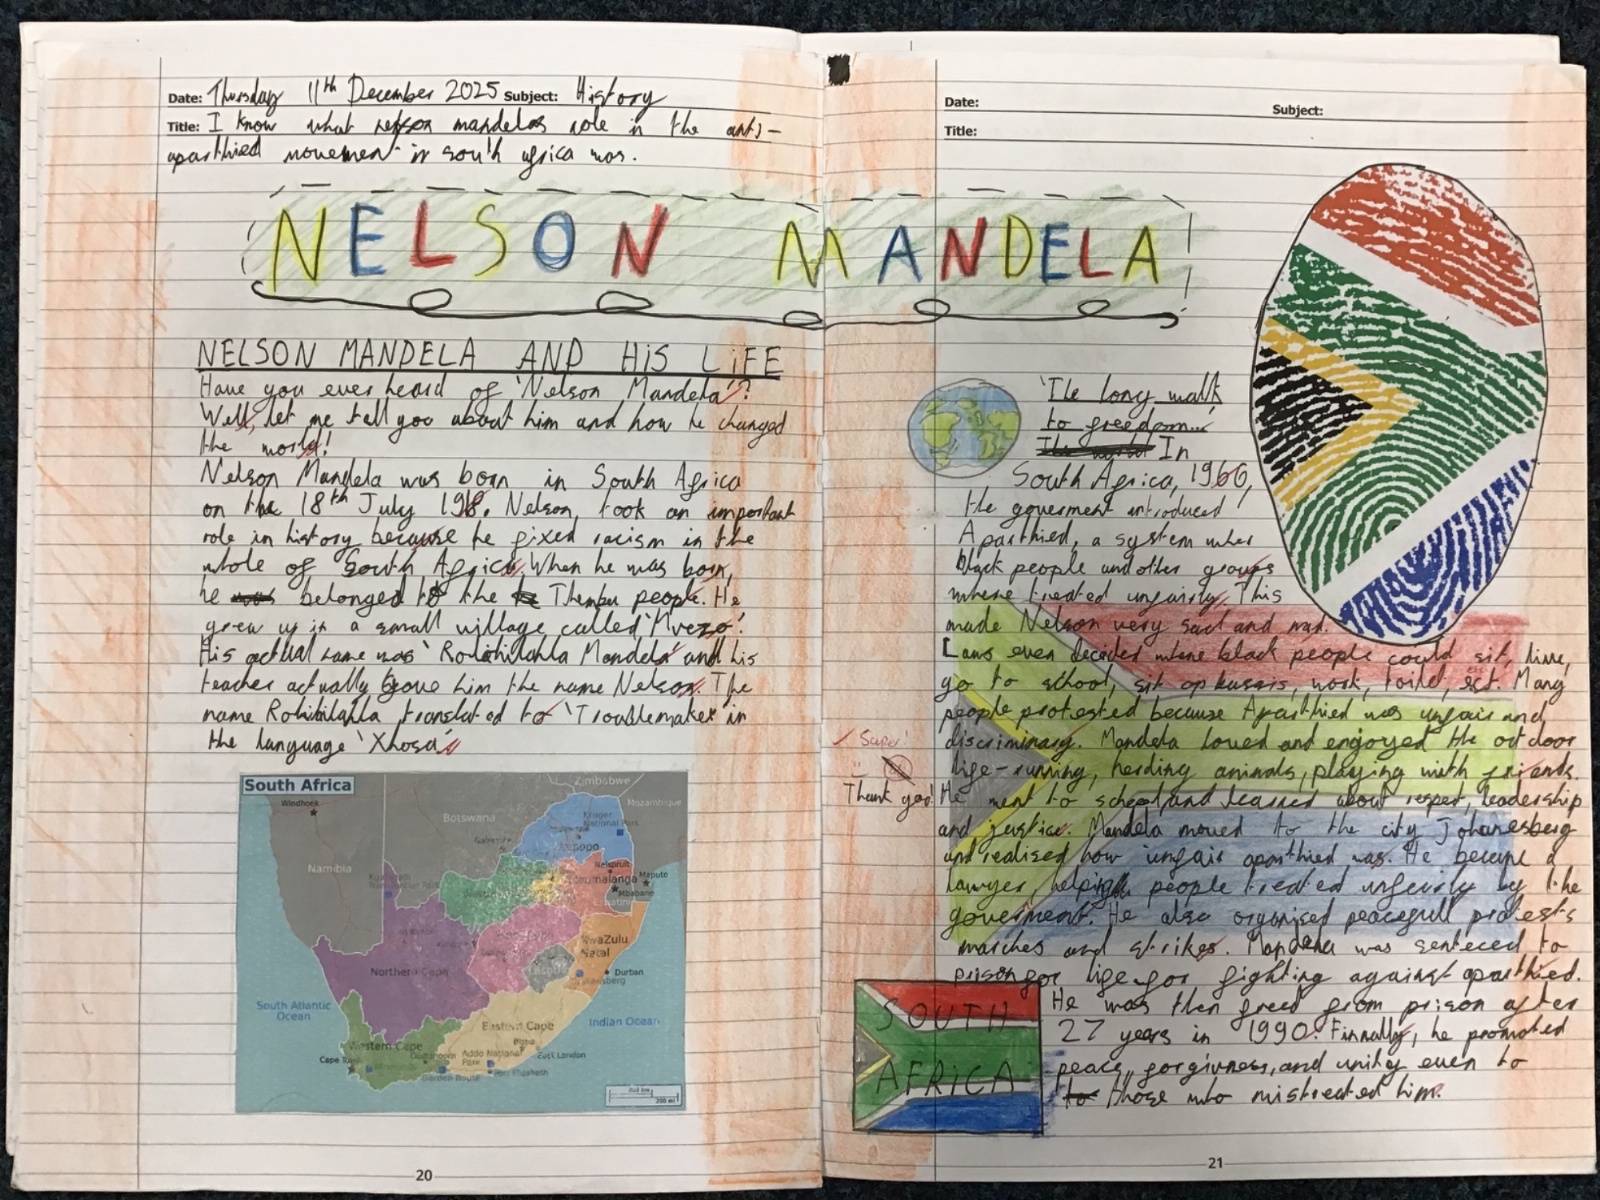 Date: Thursday 11th December 2025 Subject: History
Title: I know what nelson mandelas role in the anti-
aparthied movement in south africa was.
NELSON MANDELA
NELSON MANDELA AND HiS LiFE
Have you ever heard of 'Nelson Mandela'?
Well, let me tell you about him and how he changed
the world!
Nelson Mandela was born in South Africa
on the 18th July 1918. Nelson, took an important
role in history because he fixed racism in the
whole of South Africa. When he was born,
he belonged to the Thembu people. He
grew up in a small village called 'Mvezo'.
His actual name was 'Rolihlahla Mandela' and his
teacher actually gave him the name Nelson. The
name translated to 'Troublemaker' in
the language 'Xhosa'
South Africa
Windhoek
Namibia
Botswana
Zimbabwe
Mozambique
Kruger
National Park
Limpopo
Nelspruit
Mpumalanga
Maputo
Mbabane
Northern Cape
KwaZulu
Natal
Durban
South Atlantic
Ocean
Indian Ocean
Eastern Cape
Western Cape
Cape Town
Garden Route
Addo National
Park
East London
Port Elizabeth
200 mi
20
Date: Subject:
Title:
'The long walk
to freedom...'
In
South Africa, 1960,
the goverment introduced
Aparthied, a system wher
black people and other groups
where treated unfairly. This
made Nelson very sad and mad.
Laws even decided where black people could sit, live,
go to school, sit op busses, work, toilet, ect. Many
people protested because Aparthied was unfair and
discriminary. Mandela loved and enjoyed the outdoor
life-running, herding animals, playing with friends.
He went to school, and learned about respect, leadership
and justice. Mandela moved to the city Johanesberg
and realised how unfair aparthied was. He became a
lawyer, helping people treated unfairly by the
goverment. He also organised peacefull protests
marches and strikes. Mandela was senteced to
prison for life for fighting against aparthied.
He was then freed from prison after
27 years in 1990. Finnally, he promoted
peace, forgivness, and unity even to
those who mistreated him.
Super!
Thank you!
SOUTH
AFRICA
21